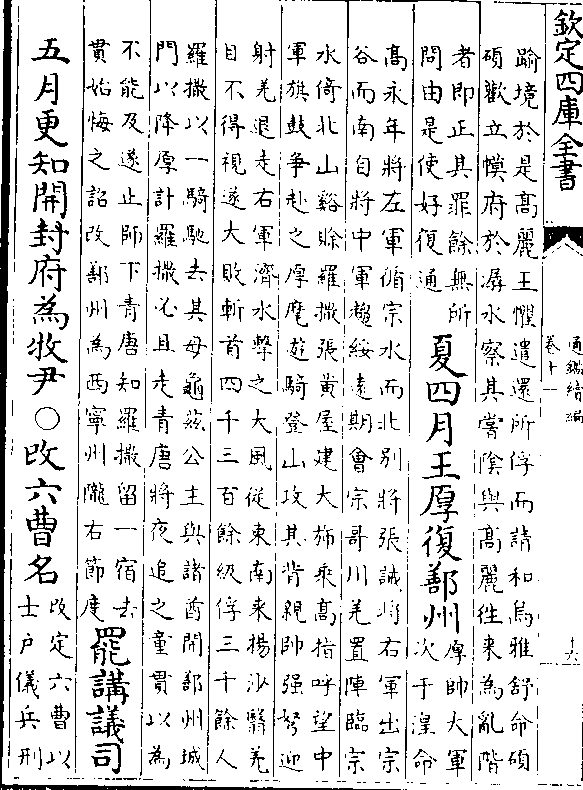 欽定四庫全書
通鑑續編
卷十一
十六
踰境於是髙麗王懼遣還所俘而請和烏雅舒命碩
碩歡立幙府於潺水察其嘗隂與髙麗徃来為亂階
者即正其罪餘無所
問由是使好復通
夏四月王厚復鄯州
厚帥大軍
次于湟命
髙永年將左軍循宗水而北别將張誠將右軍出宗
谷而南自將中軍趨綏逺期會宗哥川羌置陣臨宗
水倚北山谿賒羅撒張黄屋建大斾乗髙指呼望中
軍旗鼓爭赴之厚麾逰騎登山攻其背親帥强弩迎
射羌退走右軍濟水擊之大風從東南来揚沙翳羌
目不得視遂大敗斬首四千三百餘級俘三千餘人
羅撒以一騎馳去其母龜兹公主與諸酋開鄯州城
門以降厚計羅撒必且走青唐將夜追之童貫以為
不能及遂止師下青唐知羅撒留一宿去
貫始悔之詔改鄯州為西寧州隴右節度
罷講議司
五月更知開封府為牧尹○改六曹名
改定六曹以
士户儀兵刑